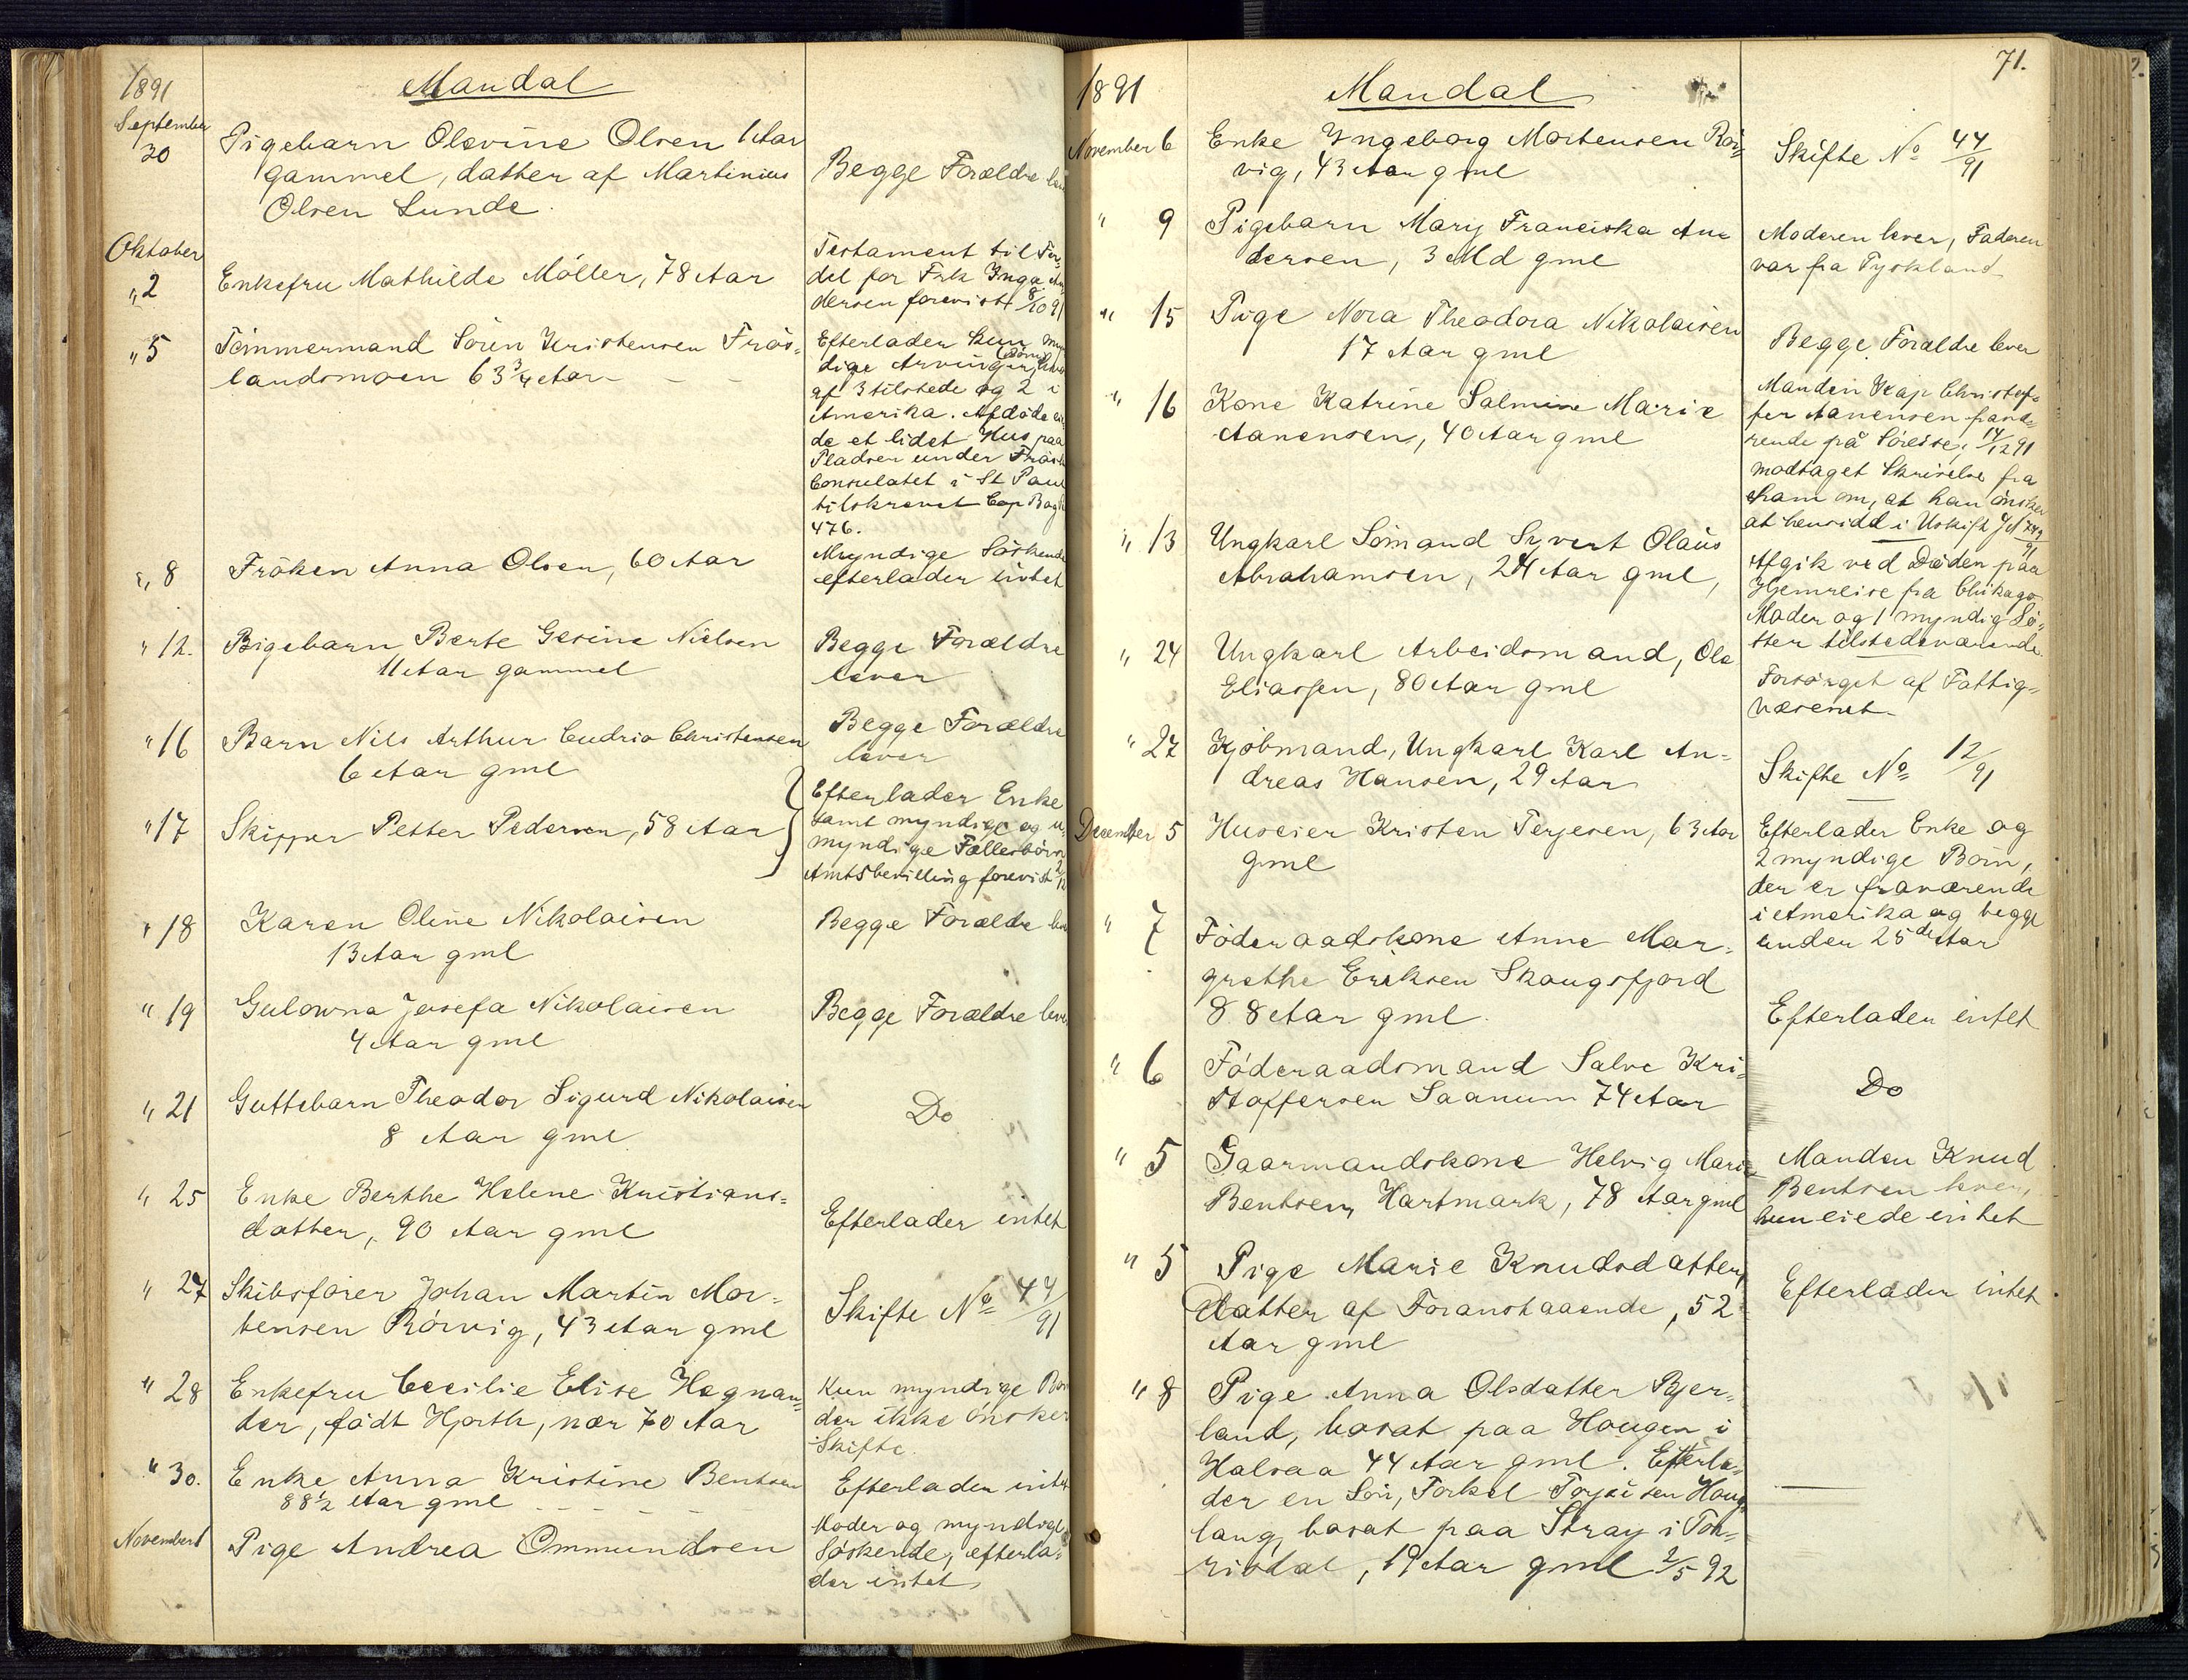 1891
Mandal
September
30
Pigebarn Olevine Olsen 1 Aar
gammel, datter af Martinius
Olsen Lunde.
Begge Forældre
Oktober
" 2
Enkefru Mathilde Möller, 78 Aar
Testament til For=
del for Frk Inga An
dersen forevist 8/10 91
" 5
Tömmermand Sören Kristensen Frös=
landsmoen 63 3/4 Aar - - -
Efterlader kun myn
dige Arvinger,
af 3 tilstede og 2 i
Amerika. Afdöde ei
de et lidet Hus paa
Pladsen under Frös
Consulatet i St Paul
tilskrevet Cop Bog
476.
" 8
Fröken Anna Olsen, 60 Aar
Myndige Söskende
efterlader intet
" 12.
Pigebarn Berte Gesine Nielsen
11 Aar gammel
Begge Forældre
lever
" 16
Barn Nils Arthur Christensen
6 Aar gml
Begge Forældre
lever
" 17
Skipper Petter Pedersen, 58 Aar
Efterlader Enke
samt myndige og u=
myndige Fællesbörn
Amtsbevilling forevist
" 18
Karen Oline Nikolaisen
13 Aar gml
Begge Forældre
" 19
Gulowna Josefa Nikolaisen
4 Aar gml
Begge Forældre lever
" 21
Guttebarn Theodor Sigurd Nikolaisen
8 Aar gml
Do
" 25
Enke Berthe Helene Kristians=
datter, 90 Aar gml
Efterlader intet
" 27
Skibsförer Johan Martin Mor=
tensen Rörvig, 43 Aar gml
Skifte No 44/91
" 28
Enkefru Cecilie Elise Hegnan=
der, födt Hjorth, nær 70 Aar
Kun myndige Börn
der ikke önsker
Skifte.
" 30.
Enke Anna Kristine Bentsen
88 1/2 Aar gml - - - -
Efterlader intet
November
Pige Andrea Ommundsen
Moder og myndige
Söskende, efterla=
der intet
71.
1891
Mandal
November 6
Enke Yngeborg Mortensen Rör=
vig, 43 Aar gml
Skifte No 44/91
" 9
Pigebarn Mary Franciska An=
dersen, 3 Md gml
Moderen lever, Faderen
var fra Tyskland
" 15
Pige Nora Theodora Nikolaisen
17 Aar gml
Begge Forældre lever
" 16
Kone Katrine Salmine Marie
Aanensen, 40 Aar gml
Manden Kap Christof=
fer Aanensen fravæ=
rende på Söreise, 14/12 91
modtaget Skrivelse fra
ham om, at han önsker
at hensidde i Uskift
" 13
Ungkarl Sömand Syvert Olaus
Abrahamsen, 24 Aar gml,
Afgik ved Döden paa
Hjemreise fra Chikago
Moder og 1 myndig Sö=
ster tilstedeværende.
" 24
Ungkarl Arbeidsmand, Ole
Eliassen, 80 Aar gml
Forsörget af Fattig=
væsenet
" 27
Kjöbmand, Ungkarl Karl An=
dreas Hansen, 29 Aar
Skifte No 12/91
December 5
Huseier Kristen Terjesen, 63 Aar
gml
Efterlader Enke og
2 myndige Börn,
der er fraværende
i Amerika og begge
under 25de Aar
" 7
Föderaadskone Anne Mar=
grethe Eriksen Skougsfjord
88 Aar gml.
Efterlader intet
" 6
Föderaadsmand Salve Kri=
stoffersen Saanum 74 Aar
Do
" 5
Gaarmandskone Helvig Marie
Bentsen, Hartmark, 78 Aar gml
Manden Knud
Bentsen lever,
hun eiede intet
" 5
Pige Marie Knudsdatter,
Datter af Foranstaaende, 52
Aar gml
Efterlader intet
" 8
Pige Anna Olsdatter Bjer=
land, bosat paa Hougen i
Halsaa 44 Aar gml. Efterla=
der en Sön, Torkel Torjeisen Houg
land, bosat paa Stray i Tor=
risdal, 19 Aar gml 2/5 92